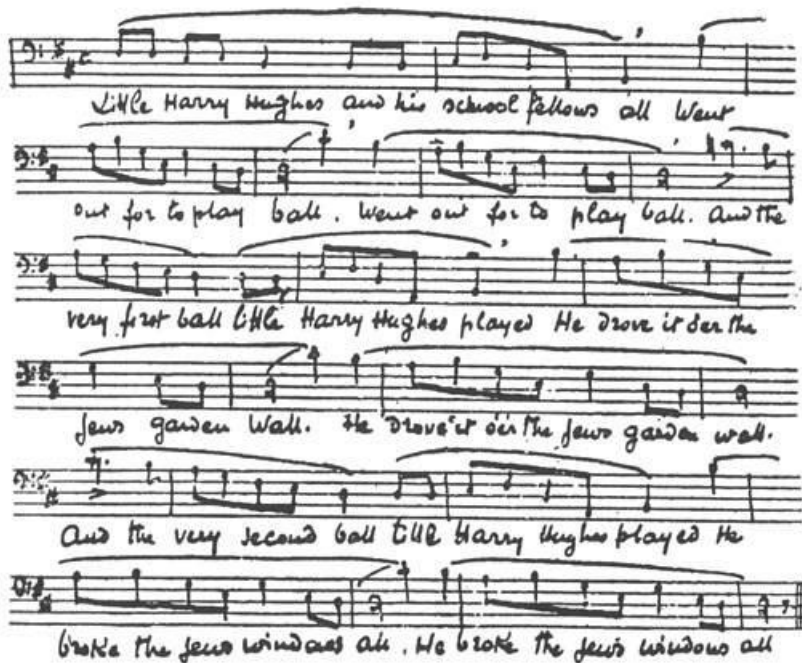 Little Harry Hughes and his school fellows all Went
out for to play ball. Went out for to play ball. And the
very first ball little Harry Hughes played He drove it o'er the
Jews garden Wall. He drove it o'er the Jews garden wall.
And the very second ball little Harry Hughes played He
broke the Jews windows all. He broke the Jew's windows all